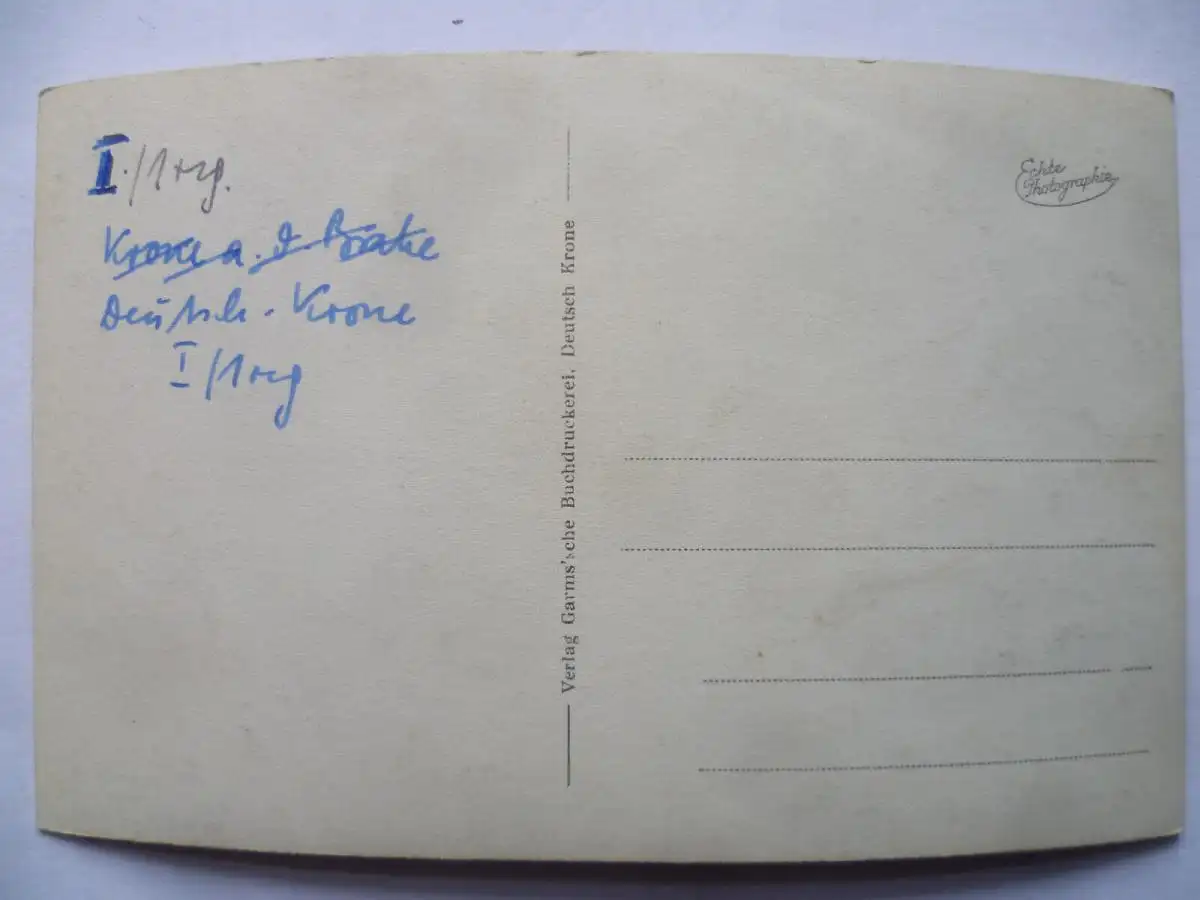 I./1+rg.
Krone a. d. Brahe
Deutsch-Krone
I/1+rg
Verlag Garms'sche Buchdruckerei, Deutsch Krone
Echte
Photographie